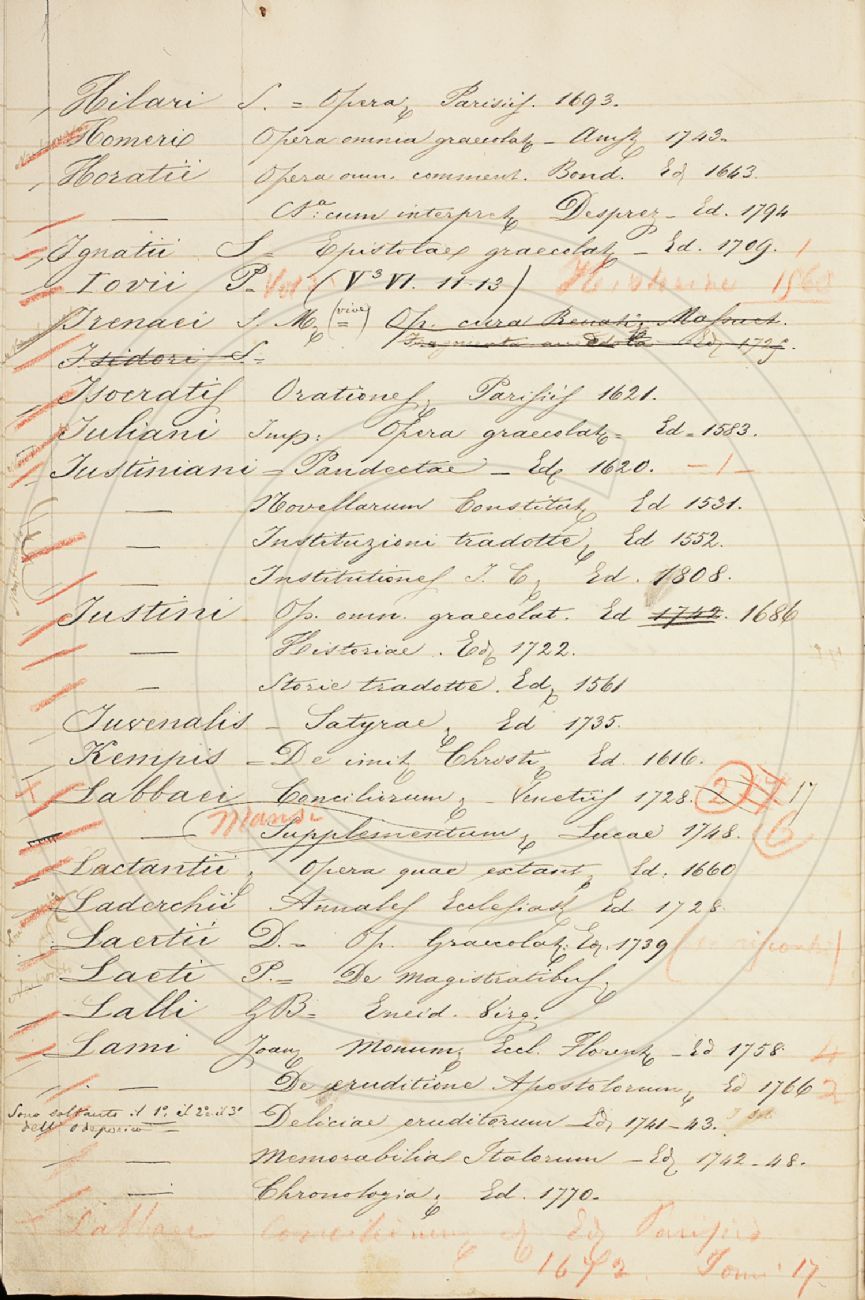 Hilari S. = Opera, Parisiis. 1693.
Homeri Opera omnia graecolat, - Amst, 1743.
Horatii Opera omn. comment. Bond. Ed, 1643.
— cum interpret, Desprez - Ed. 1794
Ignatii S = Epistolae graecolat, - Ed. 1709. 1
Iovii P = (V³ VI. 11-13) 1560
Irenaei S. M, (vive =) Op. cura Renati, Massuet.
Fragmenta anecdota Ed, 1725.
Isidori S =
Isocratis Orationes, Parisiis 1621.
Iuliani Imp: Opera graecolat, = Ed = 1583.
Iustiniani = Pandectae - Ed, 1620. - 1 -
— Novellarum Constitut, Ed 1531.
— Instituzioni tradotte, Ed 1552.
— Institutiones I. C, Ed. 1808.
Iustini Op. omn. graecolat. Ed 1742. 1686
— Historiae. Ed, 1722.
— Storie tradotte. Ed, 1561
Iuvenalis - Satyrae, Ed 1735.
Kempis = De imit, Christi, Ed. 1616.
Labbaei Conciliorum, - Venetiis 1728. 2 17
Mansi
— Supplementum, Lucae 1748. 6
Lactantii, Opera quae extant, Ed. 1660
Laderchii Annales Ecclesiast, Ed 1728
Laertii D. = Op. Graecolat, Ed, 1739
Laeti P. = De magistratibus,
Lalli G B = Eneid. Virg.
Lami Joan, Monum, Eccl. Florent, - Ed 1758. 4
— De eruditione Apostolorum, Ed 1766 2
Sono soltanto il 1°, il 2° e il 3° dell' Odeporico
Deliciae eruditorum - Ed, 1741-43.
— Memorabilia Italorum - Ed, 1742-48.
— Chronologia, Ed. 1770.
+ Labbaei Conciliorum, Ed, Parisiis
1672. Tomi 17.